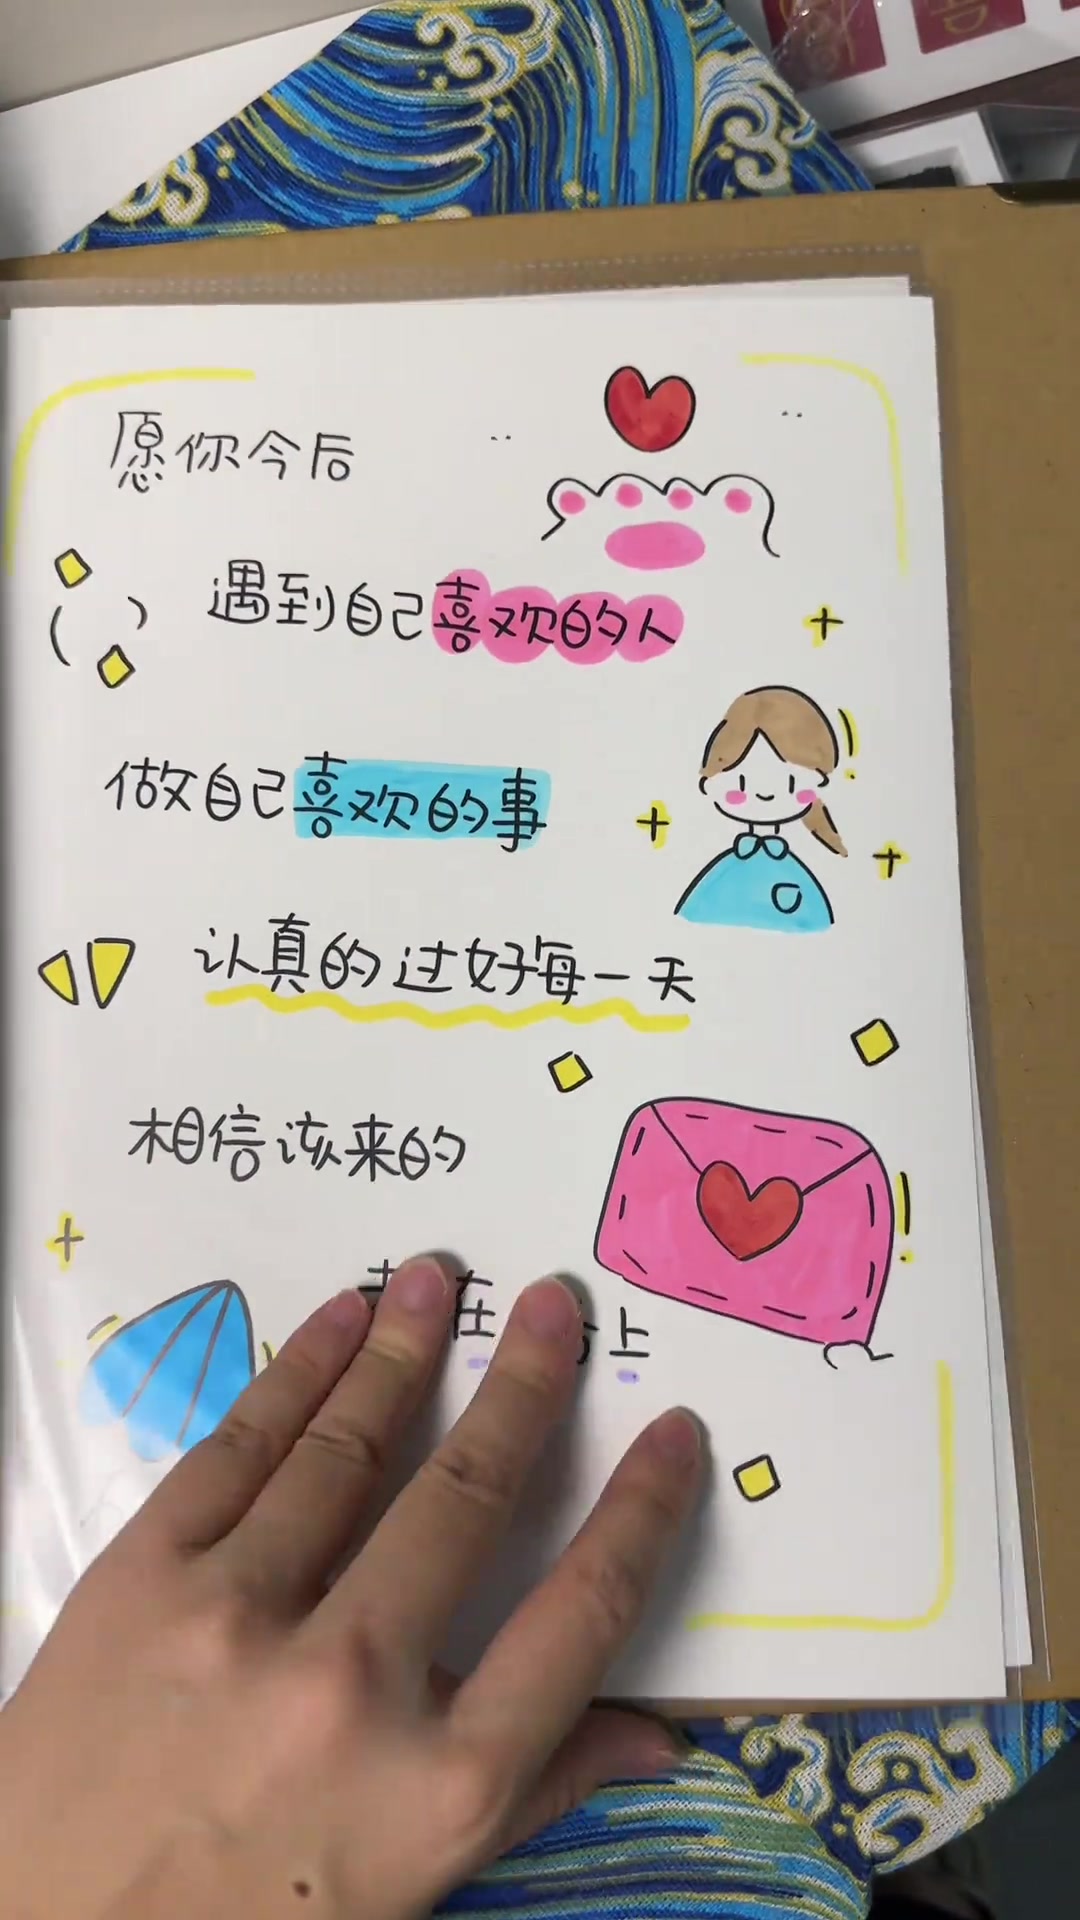 愿你今后
遇到自己喜欢的人
做自己喜欢的事
认真的过好每一天
相信该来的
在
上